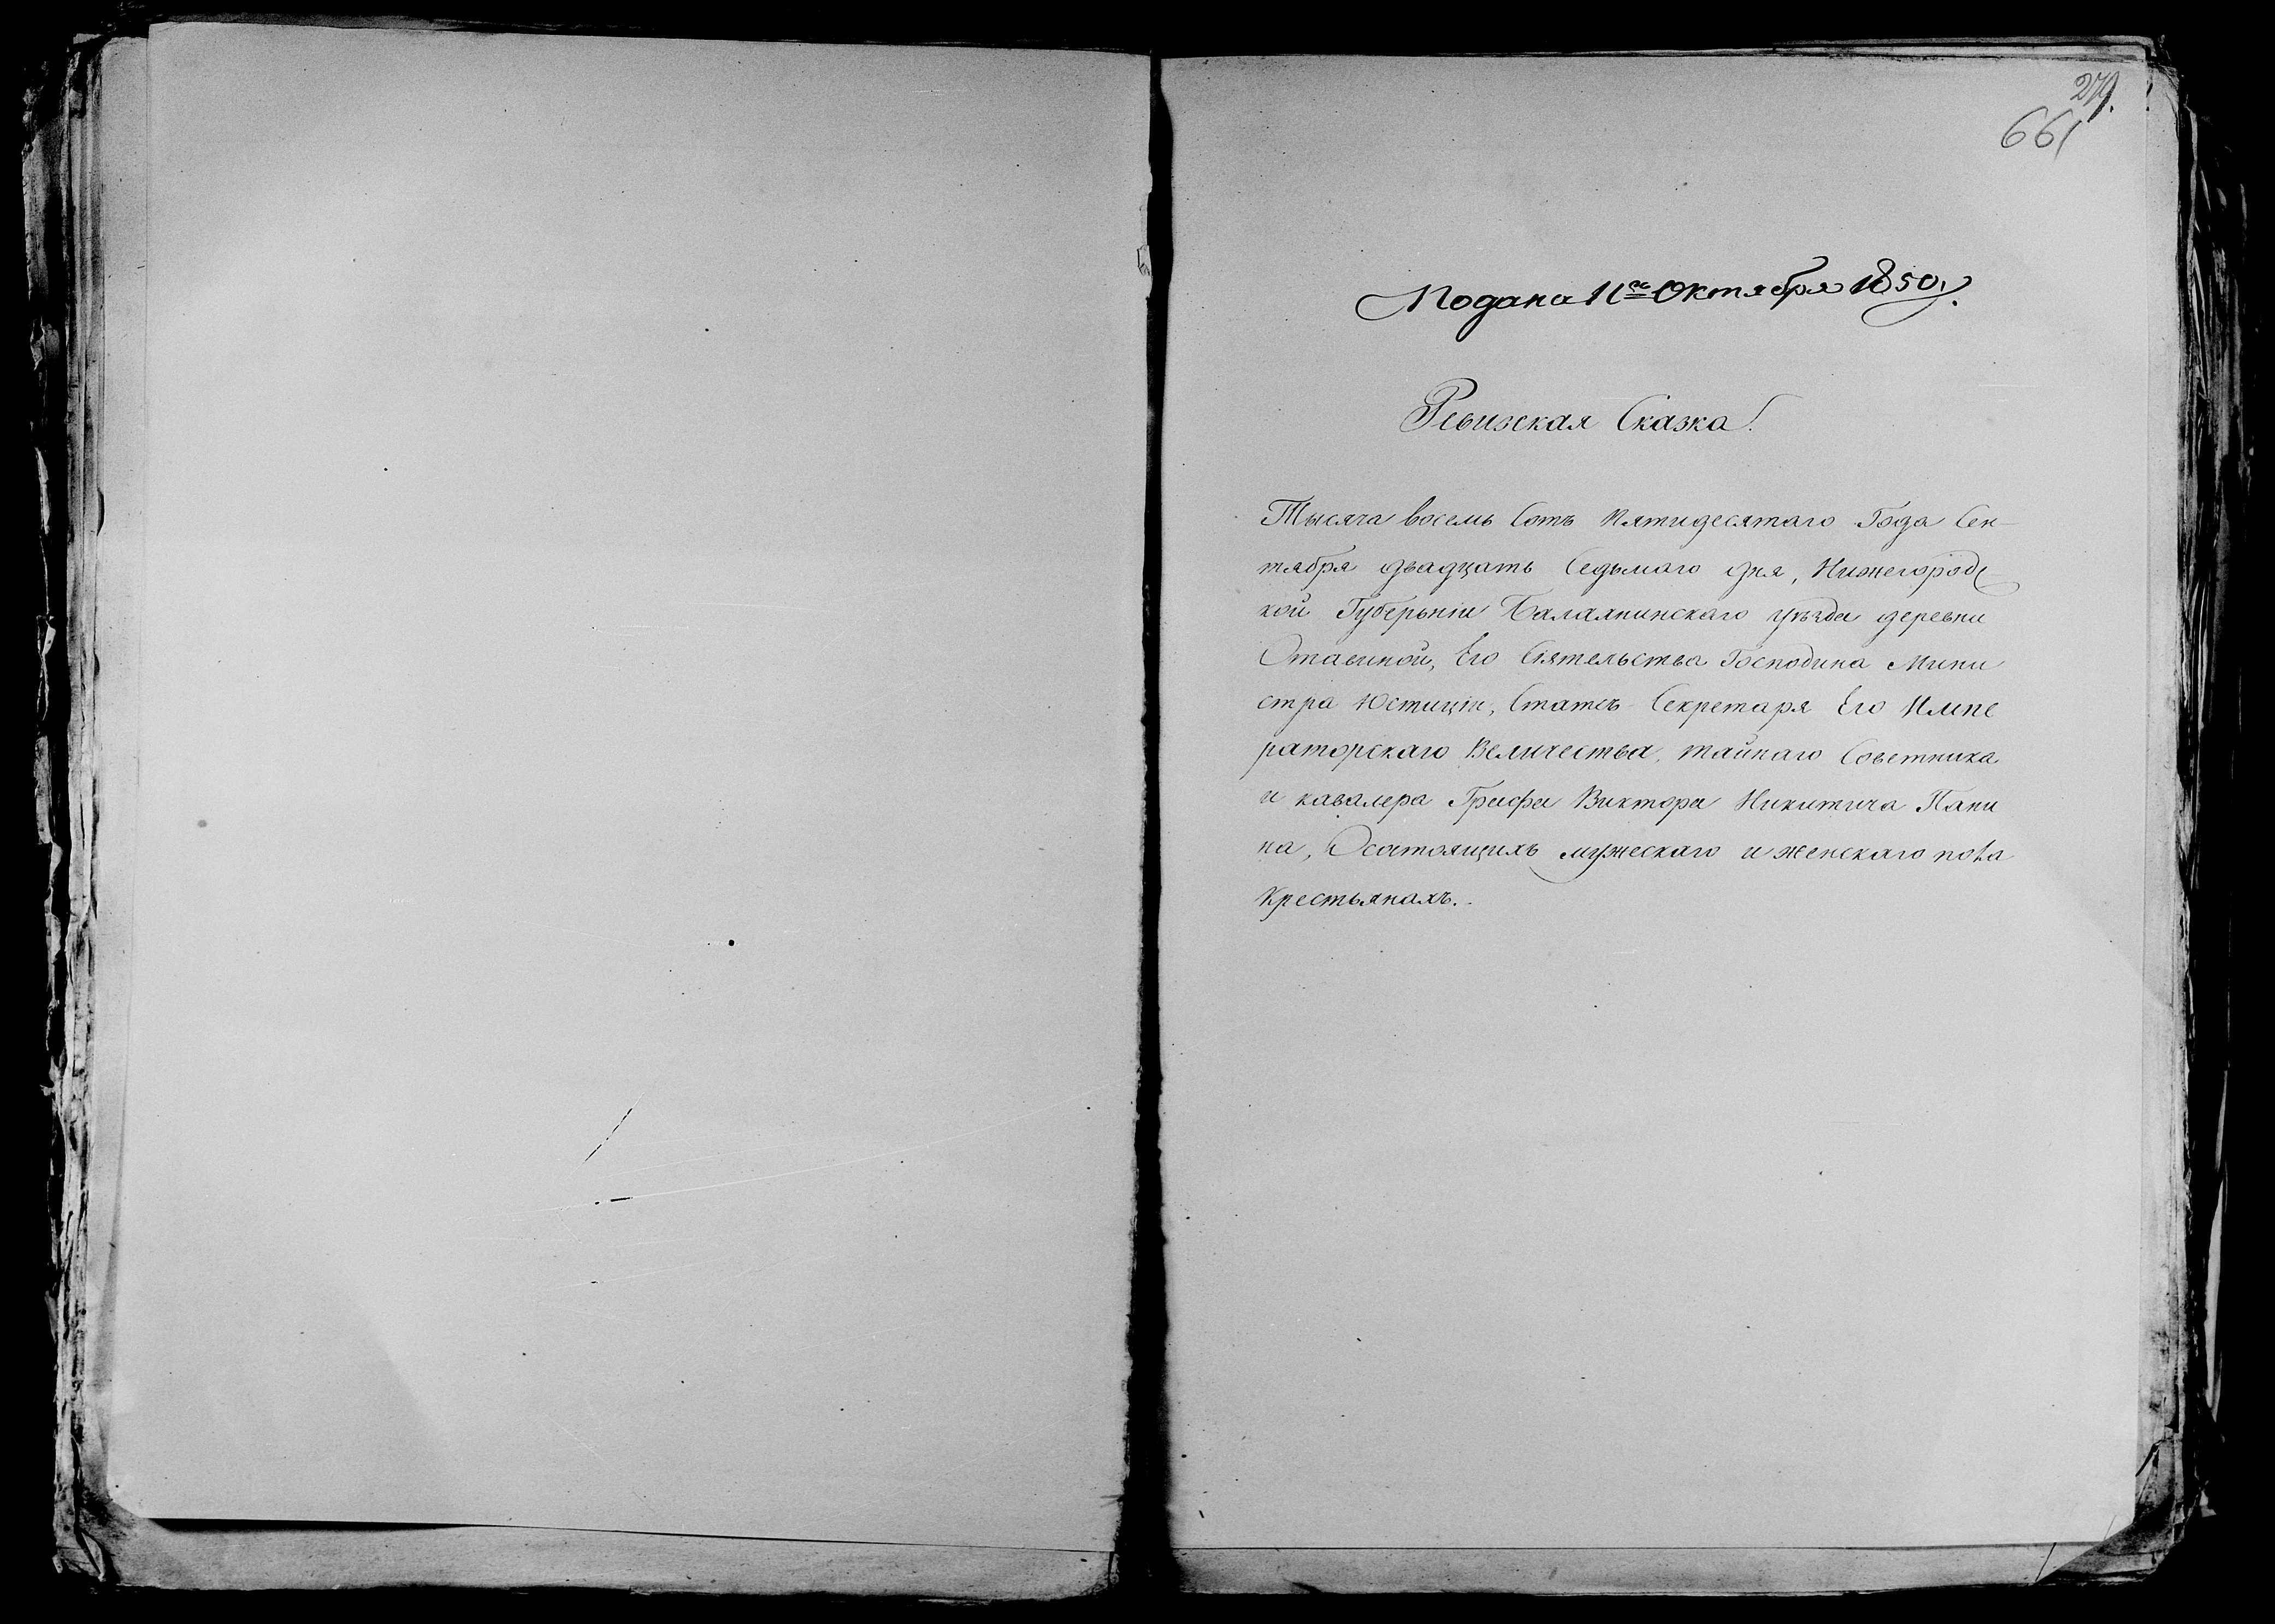 279.
661
Подана 11го Октября 1850 г.
Ревизская Сказка.
Тысяча восемь Сотъ Пятидесятаго Года Сен-
тября двадцать Седьмаго дня, Нижегородс
кой Губерьніи Балахнинскаго уѣзда деревни
Его Сіятельства Господина Мини
стра Юстиціи, Статсъ-Секретаря Его Импе
раторскаго Величества, тайнаго Советника
и кавалера Графа Виктора Никитича Пани
на, О состоящихъ мужескаго и женскаго пола
крестьянахъ.